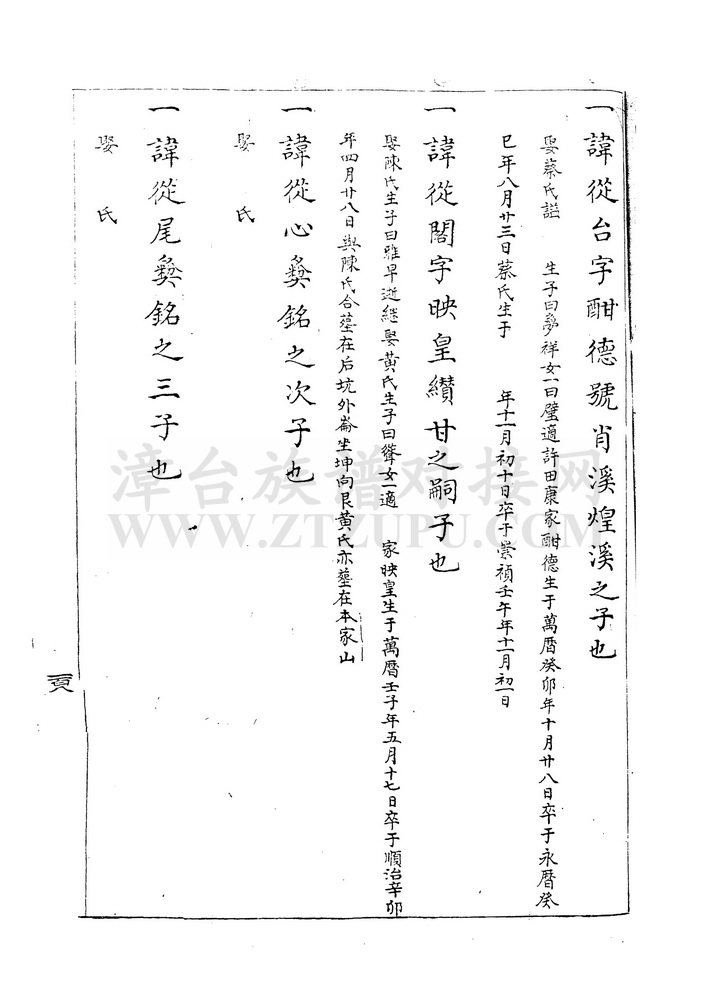 一諱從台字酣德號肖溪煌溪之子也
娶蔡氏謚 生子曰夢祥女一曰璧適許田康家酣德生于萬曆癸卯年十月廿八日卒于永曆癸
巳年八月廿三日蔡氏生于 年十一月初十日卒于崇禎壬午年十一月初一日
一諱從閣字映皇纘甘之嗣子也
娶陳氏生子曰雅早逝継娶黃氏生子曰聳女一適 家映皇生于萬曆壬子年五月十七日卒于順治辛卯
年四月廿八日與陳氏合墓在后坑外崙坐坤向艮黃氏亦墓在本家山
一諱從心彝銘之次子也
娶 氏
一諱從尾彝銘之三子也
娶 氏
漳台族谱对接网
WWW.ZTZUPU.COM